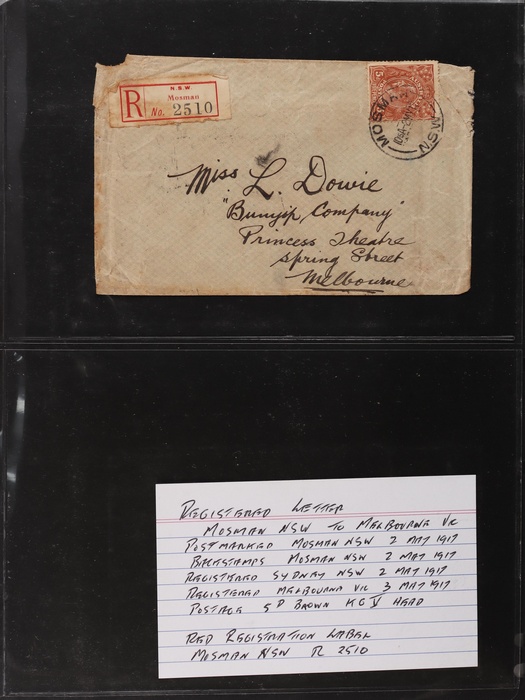 N.S.W.
R Mosman
No. 2510
MOSMAN
N.S.W
Miss L. Dowie
"Bunyip Company"
Princess Theatre
Spring Street
Melbourne
REGISTERED LETTER
MOSMAN NSW TO MELBOURNE VIC
POSTMARKED MOSMAN NSW 2 MAY 1917
BACKSTAMPS MOSMAN NSW 2 MAY 1917
REGISTERED SYDNEY NSW 2 MAY 1917
REGISTERED MELBOURNE VIC 3 MAY 1917
POSTAGE 5D BROWN KGV HEAD
RED REGISTRATION LABEL
MOSMAN NSW R 2510